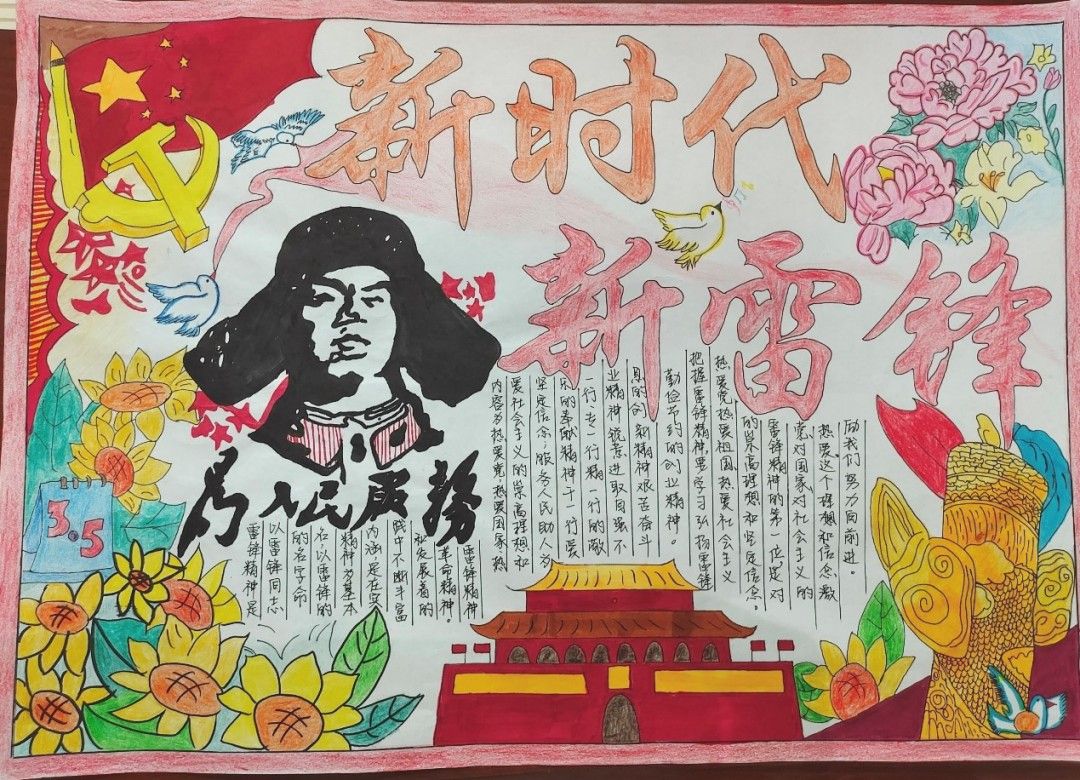 新时代
新雷锋
為人民服務
3.5
雷锋精神是
以雷锋同志
的名字命
名,以雷锋的
精神为基本
内涵,是在实
践中不断丰富
和发展着的
革命精神。
雷锋精神
内容为热爱党、热爱国家、热
爱社会主义的崇高理想和
坚定信念,服务人民、助人为
乐的奉献精神,干一行爱
一行、专一行精一行的敬
业精神,锐意进取自强不
息的创新精神,艰苦奋斗
勤俭节约的创业精神。
把握雷锋精神,要学习弘扬雷锋
热爱党、热爱祖国、热爱社会主义
的崇高理想和坚定信念。
雷锋精神的第一位是对
党对国家对社会主义的
热爱,这个理想和信念激
励我们努力向前进。